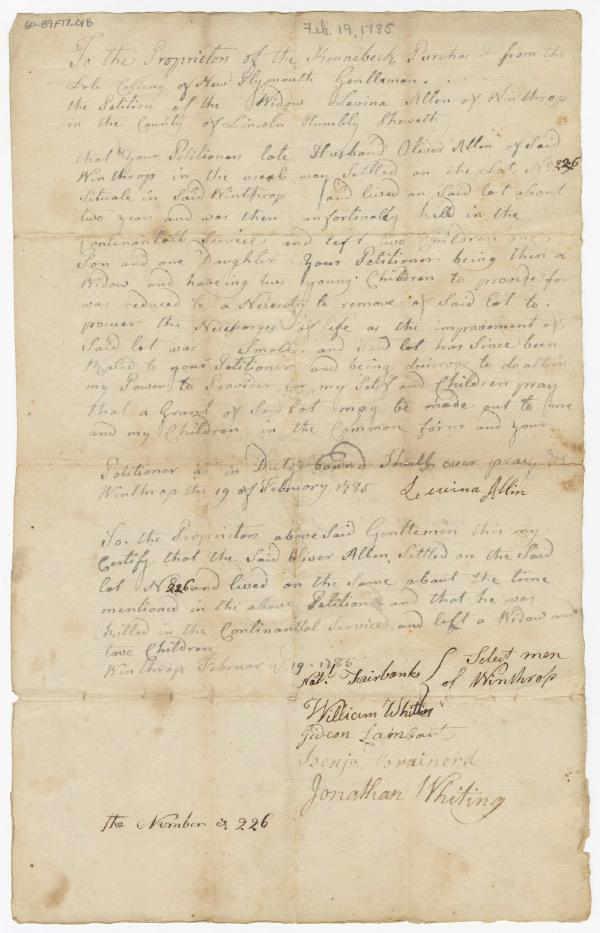 60-89F17-018
Feb. 19, 1785
To the Proprietors of the Kennebeck Purchas from the
Late Collony of New Plymouth Gentlemen
the Petition of the Widow Levina Allen of Winthrop
in the County of Lincoln Humbly Sheweth
that Your Petitioners late Husband Oliver Allin of Said
Winthrop in the useal way Settled on the Lot No 226
Situate in Said Winthrop and lived on Said lot about
two years and was then unfortinatly kild in the
Continantall Service and left two Children one
Son and one Daughter Your Petitioner being then a
Widow and haveing two young Children to provide for
was reduced to a Nesesety to remove of Said lot to
the of life as the improvement of
Said lot was Small and Said lot has Since been
to your Petitioner and being desirous to do all in
my Power to Provide for my Self and Children pray
that a Grant of Said lot may be made out to me
and my Children in the Common form and your
Petitioner as in Duty bound Shall ever pray &c
Winthrop the 19 of February 1785 Levina Allin
To the Proprietors above Said Gentlemen this my
Certify that the Said Oliver Allen Settled on the Said
lot No 226 and lived on the Same about the time
mentioned in the above Petition and that he was
killed in the Continental Service and left a Widow and
two Children
Winthrop February 19 - 1785
Natl. Fairbanks Select men
of Winthrop
William Whittier
Gideon Lambart
Benja Brainerd
Jonathan Whiting
the Number is 226